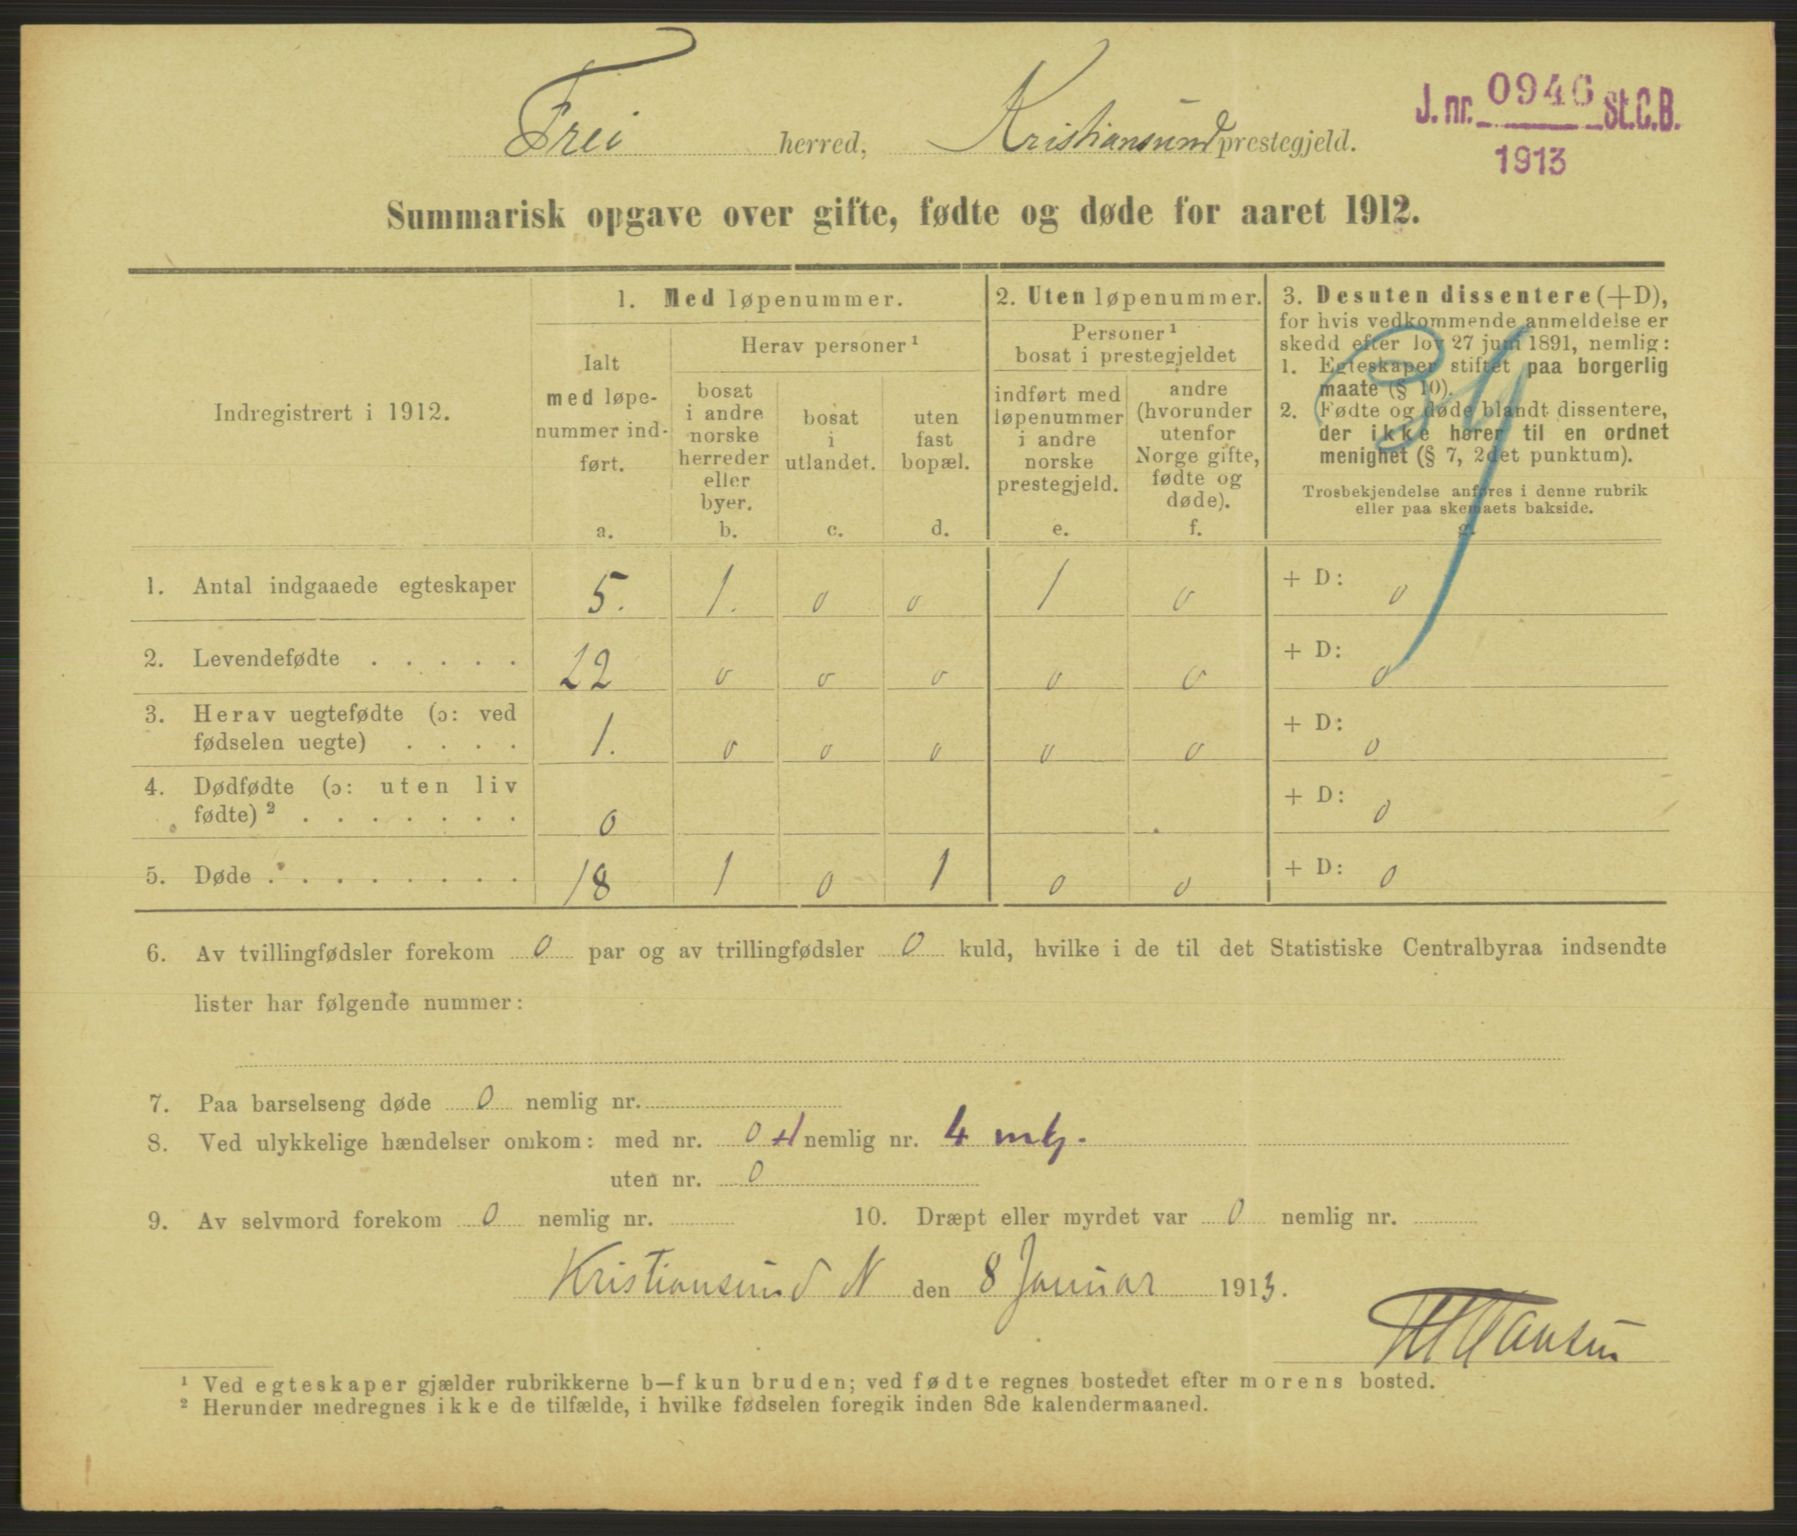 Frei herred, Kristiansund prestegjeld.
J. nr. 0946 St.C.B.
1913
Summarisk opgave over gifte, fødte og døde for aaret 1912.
Indregistrert i 1912.
1. Med løpenummer.
Ialt med løpenummer indført.
a.
Herav personer¹
bosat i andre norske herreder eller byer.
b.
bosat i utlandet.
c.
uten fast bopæl.
d.
2. Uten løpenummer.
Personer¹ bosat i prestegjeldet
indført med løpenummer i andre norske prestegjeld.
e.
andre (hvorunder utenfor Norge gifte, fødte og døde).
f.
3. Desuten dissentere (+D),
for hvis vedkommende anmeldelse er
skedd efter lov 27 juni 1891, nemlig:
1. Egteskaper stiftet paa borgerlig
maate (§ 10).
2. Fødte og døde blandt dissentere,
der ikke hører til en ordnet
menighet (§ 7, 2det punktum).
Trosbekjendelse anføres i denne rubrik
eller paa skemaets bakside.
g.
1. Antal indgaaede egteskaper 5. 1. 0 0 1 0 + D: 0
2. Levendefødte . . . . . 22 0 0 0 0 0 + D: 0
3. Herav uegtefødte (ɔ: ved
fødselen uegte) . . . . 1. 0 0 0 0 0 + D: 0
4. Dødfødte (ɔ: uten liv
fødte)² . . . . . . . 0 + D: 0
5. Døde . . . . . . . . 18 1 0 1 0 0 + D: 0
6. Av tvillingfødsler forekom 0 par og av trillingfødsler 0 kuld, hvilke i de til det Statistiske Centralbyraa indsendte
lister har følgende nummer:
7. Paa barselseng døde 0 nemlig nr.
8. Ved ulykkelige hændelser omkom: med nr. 0 1 nemlig nr. 4 mk.
uten nr. 0
9. Av selvmord forekom 0 nemlig nr. 10. Dræpt eller myrdet var 0 nemlig nr.
Kristiansund N den 8 Januar 1913.
¹ Ved egteskaper gjælder rubrikkerne b—f kun bruden; ved fødte regnes bostedet efter morens bosted.
² Herunder medregnes ikke de tilfælde, i hvilke fødselen foregik inden 8de kalendermaaned.